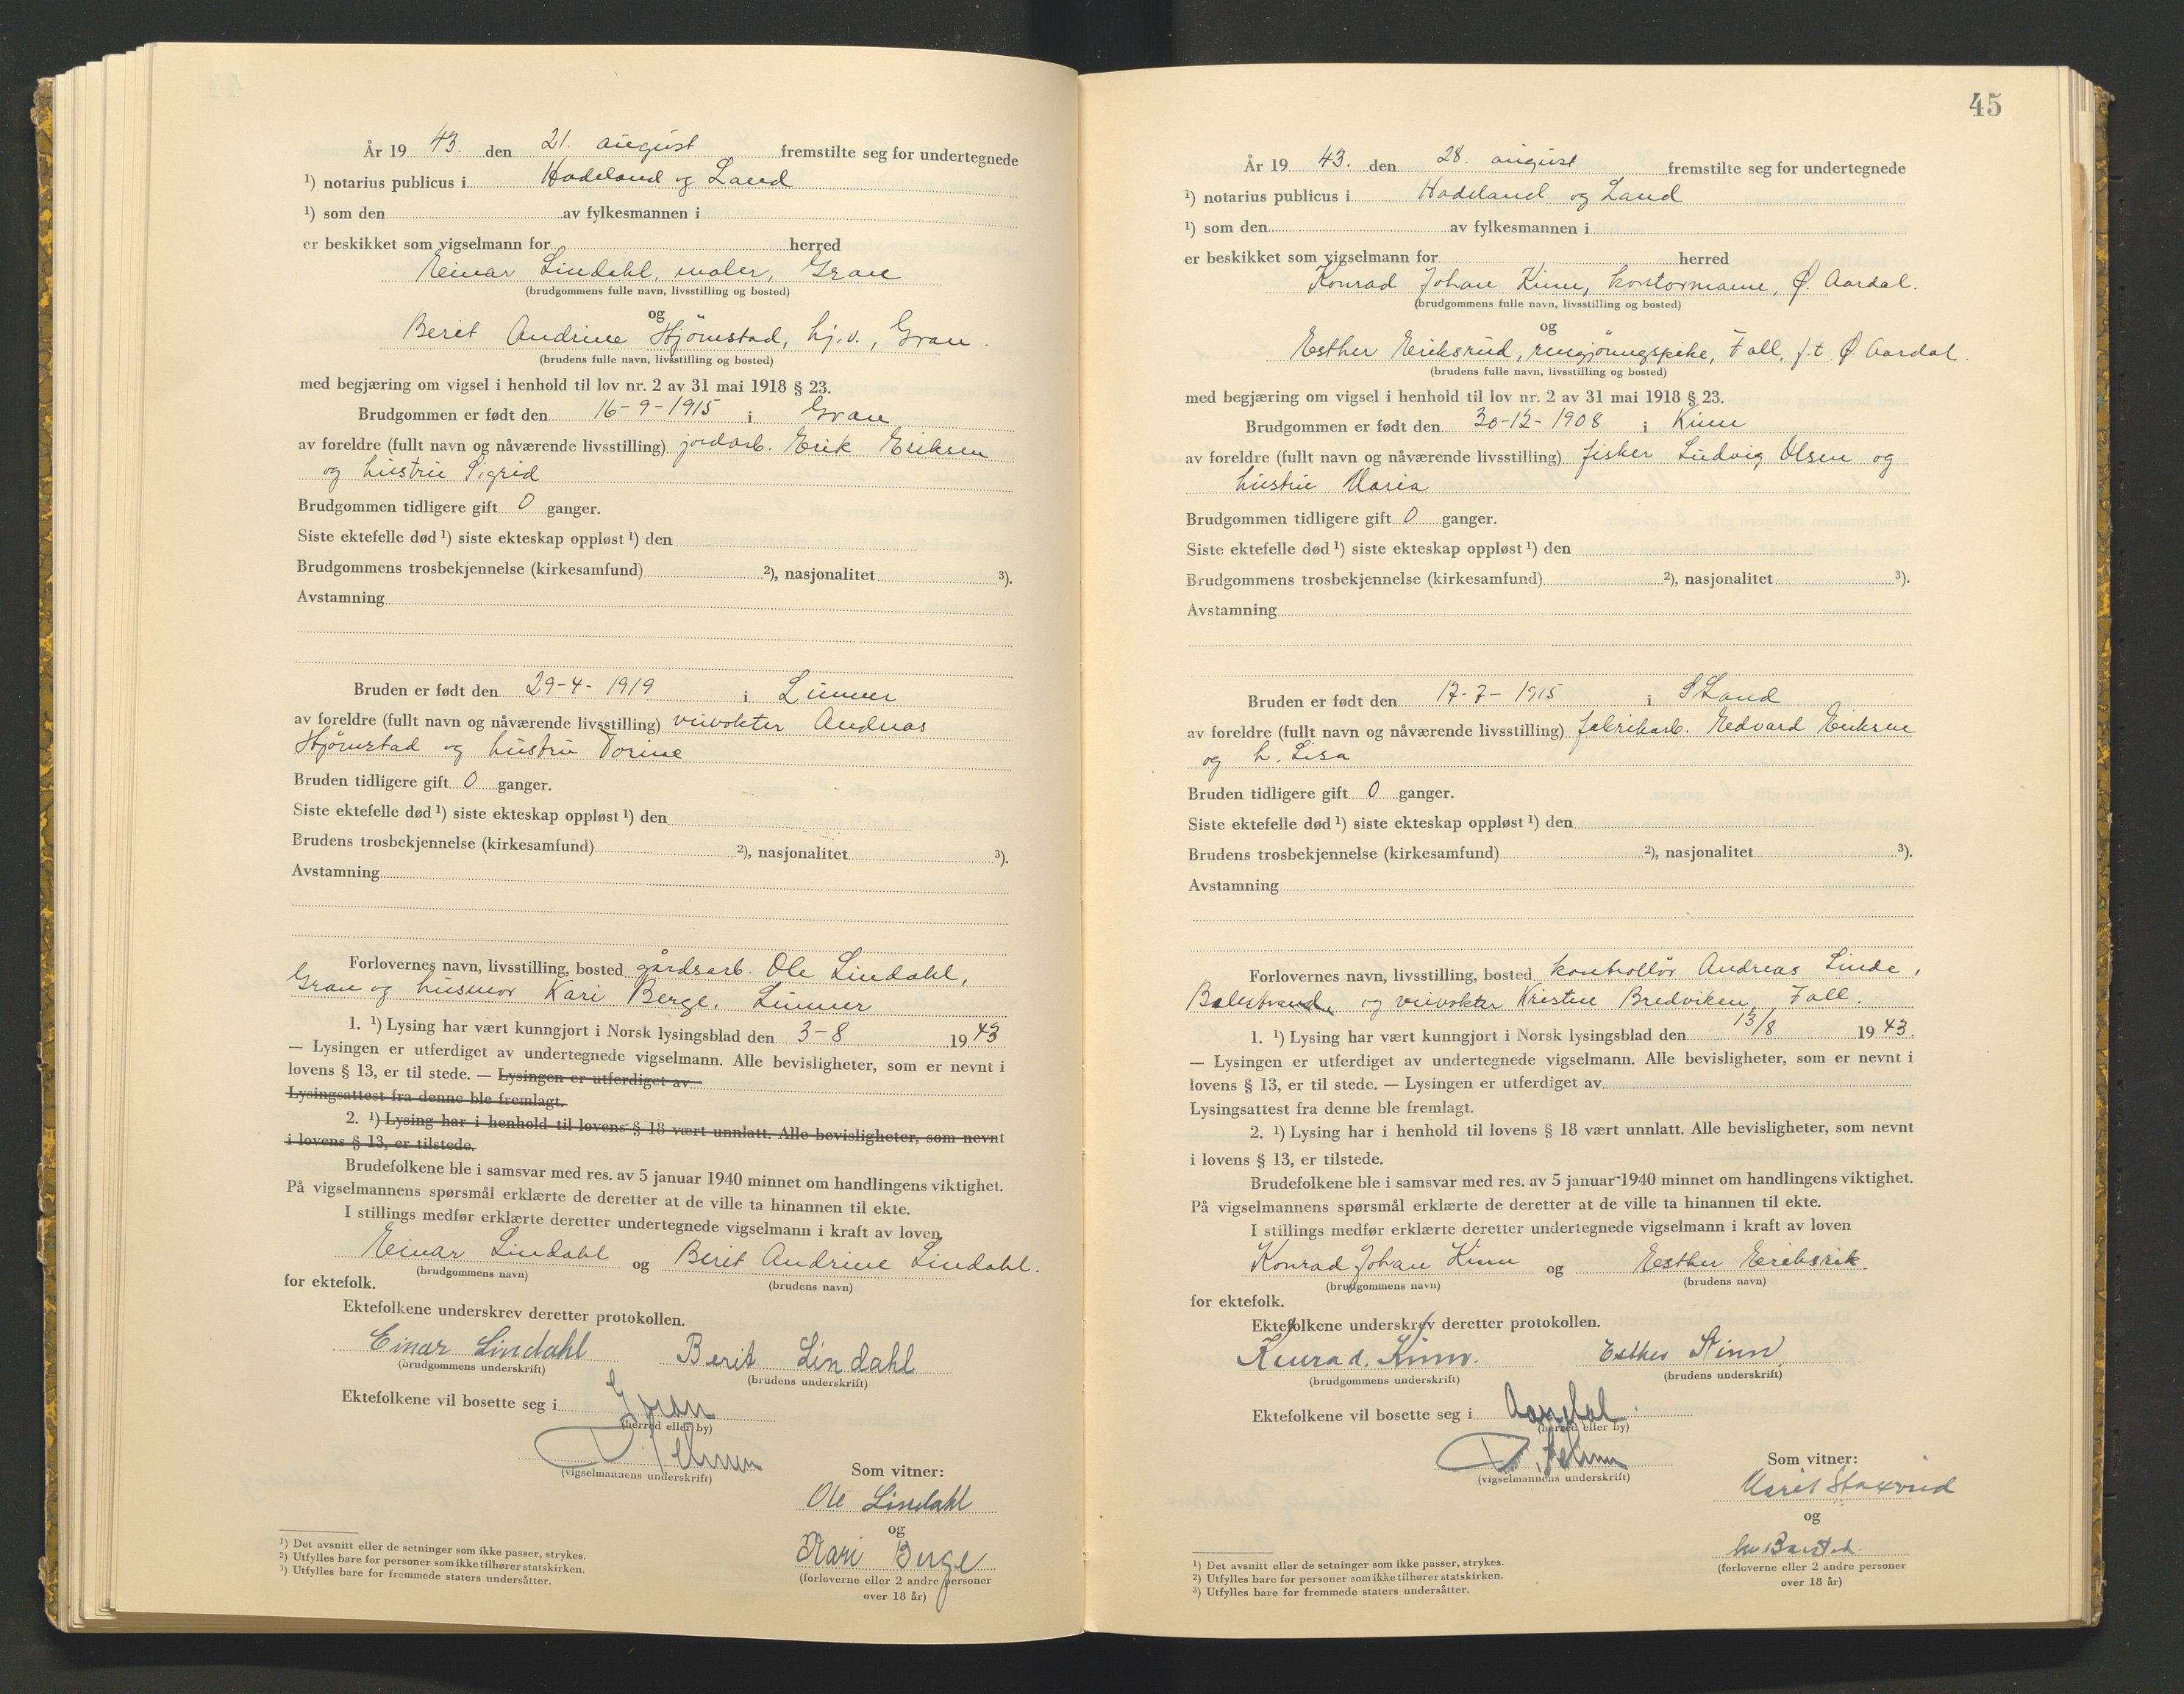 År 19 43. den 21. august fremstilte seg for undertegnede
¹) notarius publicus i Hadeland og Land
¹) som den av fylkesmannen i
er beskikket som vigselmann for herred
Einar Lindahl, maler, Gran
(brudgommens fulle navn, livsstilling og bosted)
og
Berit Andrine Hjørnstad, hj.v., Gran.
(brudens fulle navn, livsstilling og bosted)
med begjæring om vigsel i henhold til lov nr. 2 av 31 mai 1918 § 23.
Brudgommen er født den 16-9-1915 i Gran
av foreldre (fullt navn og nåværende livsstilling) jordarb. Erik Eriksen
og hustru Sigrid
Brudgommen tidligere gift 0 ganger.
Siste ektefelle død ¹) siste ekteskap oppløst ¹) den
Brudgommens trosbekjennelse (kirkesamfund) ²), nasjonalitet ³).
Avstamning
Bruden er født den 29-4-1919 i Lunner
av foreldre (fullt navn og nåværende livsstilling) veivokter Andreas
Hjørnstad og hustru Torine
Bruden tidligere gift 0 ganger.
Siste ektefelle død ¹) siste ekteskap oppløst ¹) den
Brudens trosbekjennelse (kirkesamfund) ²), nasjonalitet ³).
Avstamning
Forlovernes navn, livsstilling, bosted gårdsarb. Ole Lindahl,
Gran og husmor Kari Berge, Lunner
1. ¹) Lysing har vært kunngjort i Norsk lysingsblad den 3-8 19 43
— Lysingen er utferdiget av undertegnede vigselmann. Alle bevisligheter, som er nevnt i
lovens § 13, er til stede. — Lysingen er utferdiget av
Lysingsattest fra denne ble fremlagt.
2. ¹) Lysing har i henhold til lovens § 18 vært unnlatt. Alle bevisligheter, som nevnt
i lovens § 13, er tilstede.
Brudefolkene ble i samsvar med res. av 5 januar 1940 minnet om handlingens viktighet.
På vigselmannens spørsmål erklærte de deretter at de ville ta hinannen til ekte.
I stillings medfør erklærte deretter undertegnede vigselmann i kraft av loven
Einar Lindahl og Berit Andrine Lindahl.
(brudgommens navn) (brudens navn)
for ektefolk.
Ektefolkene underskrev deretter protokollen.
Einar Lindahl Berit Lindahl
(brudgommens underskrift) (brudens underskrift)
Ektefolkene vil bosette seg i Gran
(herred eller by)
(vigselmannens underskrift)
Som vitner:
Ole Lindahl
og
Kari Berge
(forloverne eller 2 andre personer
over 18 år)
¹) Det avsnitt eller de setninger som ikke passer, strykes.
²) Utfylles bare for personer som ikke tilhører statskirken.
³) Utfylles bare for fremmede staters undersåtter.
45
År 19 43. den 28. august fremstilte seg for undertegnede
¹) notarius publicus i Hadeland og Land
¹) som den av fylkesmannen i
er beskikket som vigselmann for herred
Konrad Johan Kinn, kontormann, Ø. Aardal.
(brudgommens fulle navn, livsstilling og bosted)
og
Esther Eriksrud, rengjøringspike, Fall, f.t. Ø. Aardal.
(brudens fulle navn, livsstilling og bosted)
med begjæring om vigsel i henhold til lov nr. 2 av 31 mai 1918 § 23.
Brudgommen er født den 30-12-1908 i Kinn
av foreldre (fullt navn og nåværende livsstilling) fisker Ludvig Olsen og
hustru Maria
Brudgommen tidligere gift 0 ganger.
Siste ektefelle død ¹) siste ekteskap oppløst ¹) den
Brudgommens trosbekjennelse (kirkesamfund) ²), nasjonalitet ³).
Avstamning
Bruden er født den 17-7-1915 i S Land
av foreldre (fullt navn og nåværende livsstilling) fabrikarb. Edvard Eriksen
og h. Lisa
Bruden tidligere gift 0 ganger.
Siste ektefelle død ¹) siste ekteskap oppløst ¹) den
Brudens trosbekjennelse (kirkesamfund) ²), nasjonalitet ³).
Avstamning
Forlovernes navn, livsstilling, bosted kontrollør Andreas Linde,
Balestrand, og veivokter Kristen Bredviken, Fall.
1. ¹) Lysing har vært kunngjort i Norsk lysingsblad den 13/8 19 43.
— Lysingen er utferdiget av undertegnede vigselmann. Alle bevisligheter, som er nevnt i
lovens § 13, er til stede. — Lysingen er utferdiget av
Lysingsattest fra denne ble fremlagt.
2. ¹) Lysing har i henhold til lovens § 18 vært unnlatt. Alle bevisligheter, som nevnt
i lovens § 13, er tilstede.
Brudefolkene ble i samsvar med res. av 5 januar 1940 minnet om handlingens viktighet.
På vigselmannens spørsmål erklærte de deretter at de ville ta hinannen til ekte.
I stillings medfør erklærte deretter undertegnede vigselmann i kraft av loven
Konrad Johan Kinn og Esther Eriksrik.
(brudgommens navn) (brudens navn)
for ektefolk.
Ektefolkene underskrev deretter protokollen.
Konrad. Kinn. Esther Kinn
(brudgommens underskrift) (brudens underskrift)
Ektefolkene vil bosette seg i Aardal.
(herred eller by)
(vigselmannens underskrift)
Som vitner:
Marit
og
(forloverne eller 2 andre personer
over 18 år)
¹) Det avsnitt eller de setninger som ikke passer, strykes.
²) Utfylles bare for personer som ikke tilhører statskirken.
³) Utfylles bare for fremmede staters undersåtter.